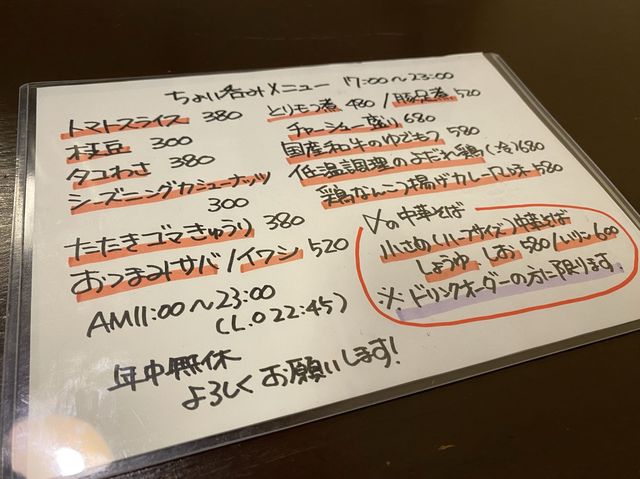 ちょい呑みメニュー 17:00〜23:00
トマトスライス 380
枝豆 300
タコわさ 380
シーズニングカシューナッツ
300
たたきゴマきゅうり 380
おつまみサバ/イワシ 520
とりモツ煮 480 / 豚足煮 520
チャーシュー盛り 680
国産和牛のゆでもつ 580
低温調理のよだれ鶏(冷)680
鶏なんこつ揚げカレー味 580
〆の中華そば
小さめ(ハーフサイズ)中華そば
しょうゆ しお 580/いりこ 600
※ドリンクオーダーの方に限ります。
AM11:00〜23:00
(L.O 22:45)
年中無休
よろしくお願いします!